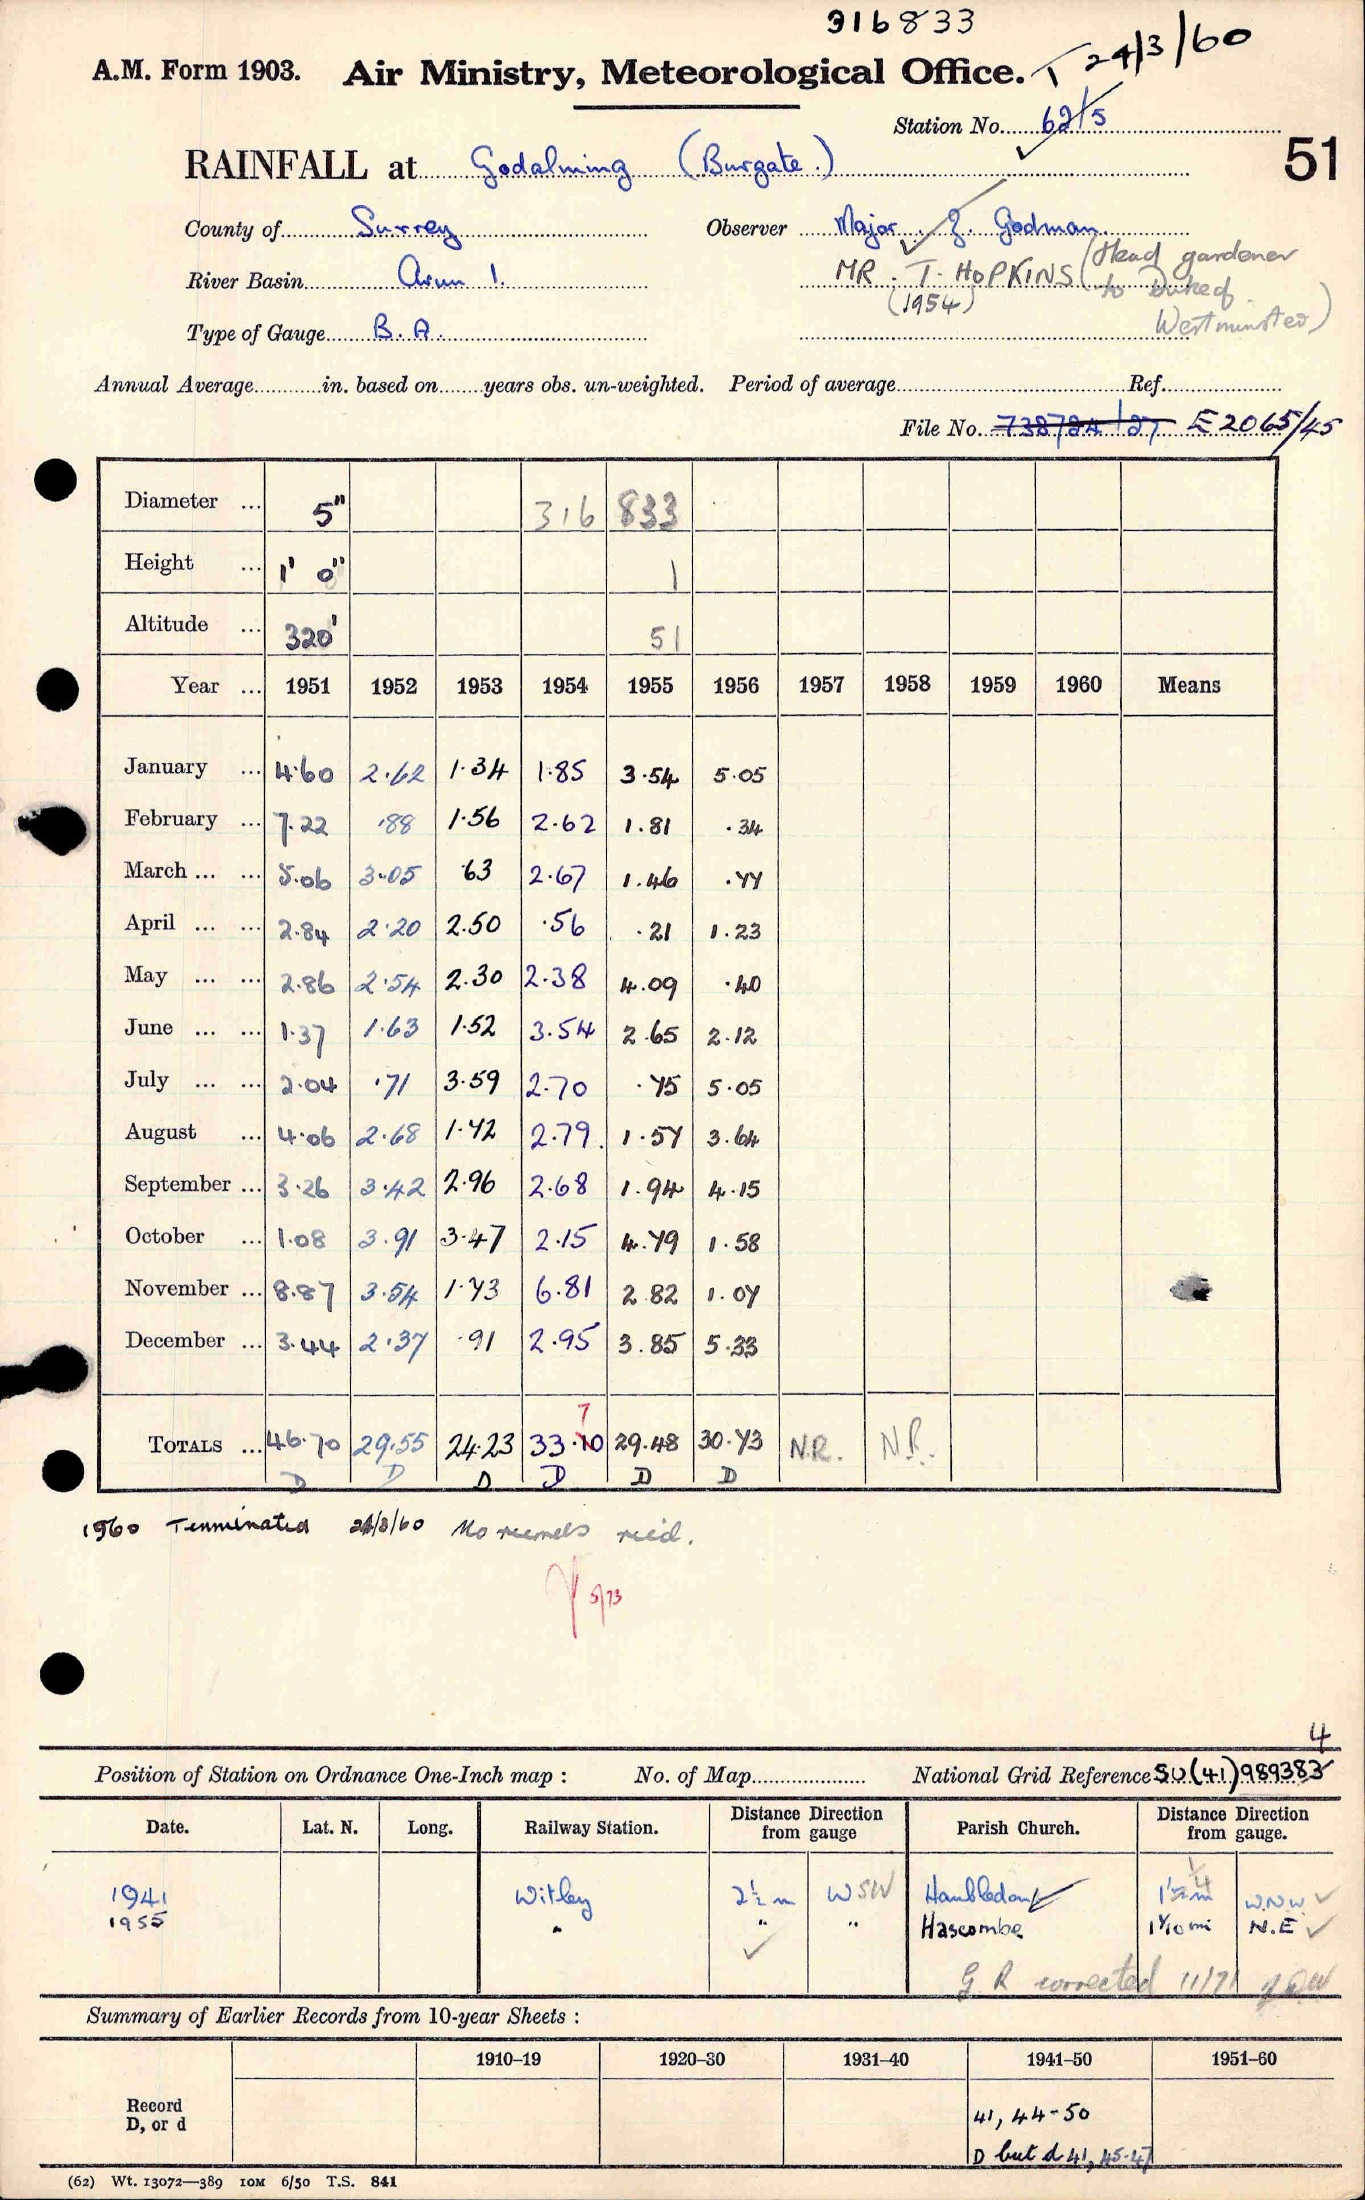 316833
A.M. Form 1903. Air Ministry, Meteorological Office. T 24/3/60
Station No. 62/5
51
RAINFALL at Godalming (Burgate.)
County of Surrey Observer Major . Z. Godman
River Basin Arun 1. MR. T. HOPKINS (Head gardener
(1954) to Duke of
Type of Gauge B.A. Westminster)
Annual Average in. based on years obs. un-weighted. Period of average Ref.
File No. 738724/27 E2065/45
Diameter ... 5" 316 833
Height ... 1' 0" 1
Altitude ... 320' 51
Year ... 1951 1952 1953 1954 1955 1956 1957 1958 1959 1960 Means
January ... 4.60 2.62 1.34 1.85 3.54 5.05
February ... 7.22 .88 1.56 2.62 1.81 .34
March ... ... 5.06 3.05 .63 2.67 1.46 .77
April ... ... 2.84 2.20 2.50 .56 .21 1.23
May ... ... 2.86 2.54 2.30 2.38 4.09 .40
June ... ... 1.37 1.63 1.52 3.54 2.65 2.12
July ... ... 2.04 .71 3.59 2.70 .75 5.05
August ... 4.06 2.68 1.72 2.79 1.57 3.64
September ... 3.26 3.42 2.96 2.68 1.94 4.15
October ... 1.08 3.91 3.47 2.15 4.79 1.58
November ... 8.87 3.54 1.73 6.81 2.82 1.07
December ... 3.44 2.37 .91 2.95 3.85 5.33
7
TOTALS ... 46.70 29.55 24.23 33.10 29.48 30.73 N.R. N.R.
D D D D D D
1960 Terminated 24/3/60 No records recd.
5/73
4
Position of Station on Ordnance One-Inch map : No. of Map National Grid Reference SU(41)989383
Date. Lat. N. Long. Railway Station. Distance Direction from gauge Parish Church. Distance Direction from gauge.
1941 Witley 2½ m WSW Hambledon 1½ m ¼ W.N.W.
1955 " " " Hascombe 1 1/10 mi N.E
G R corrected 11/71
Summary of Earlier Records from 10-year Sheets :
1910–19 1920–30 1931–40 1941–50 1951–60
Record D, or d
41, 44-50
D but d 41, 45-47
(62) Wt. 13072—389 10M 6/50 T.S. 841